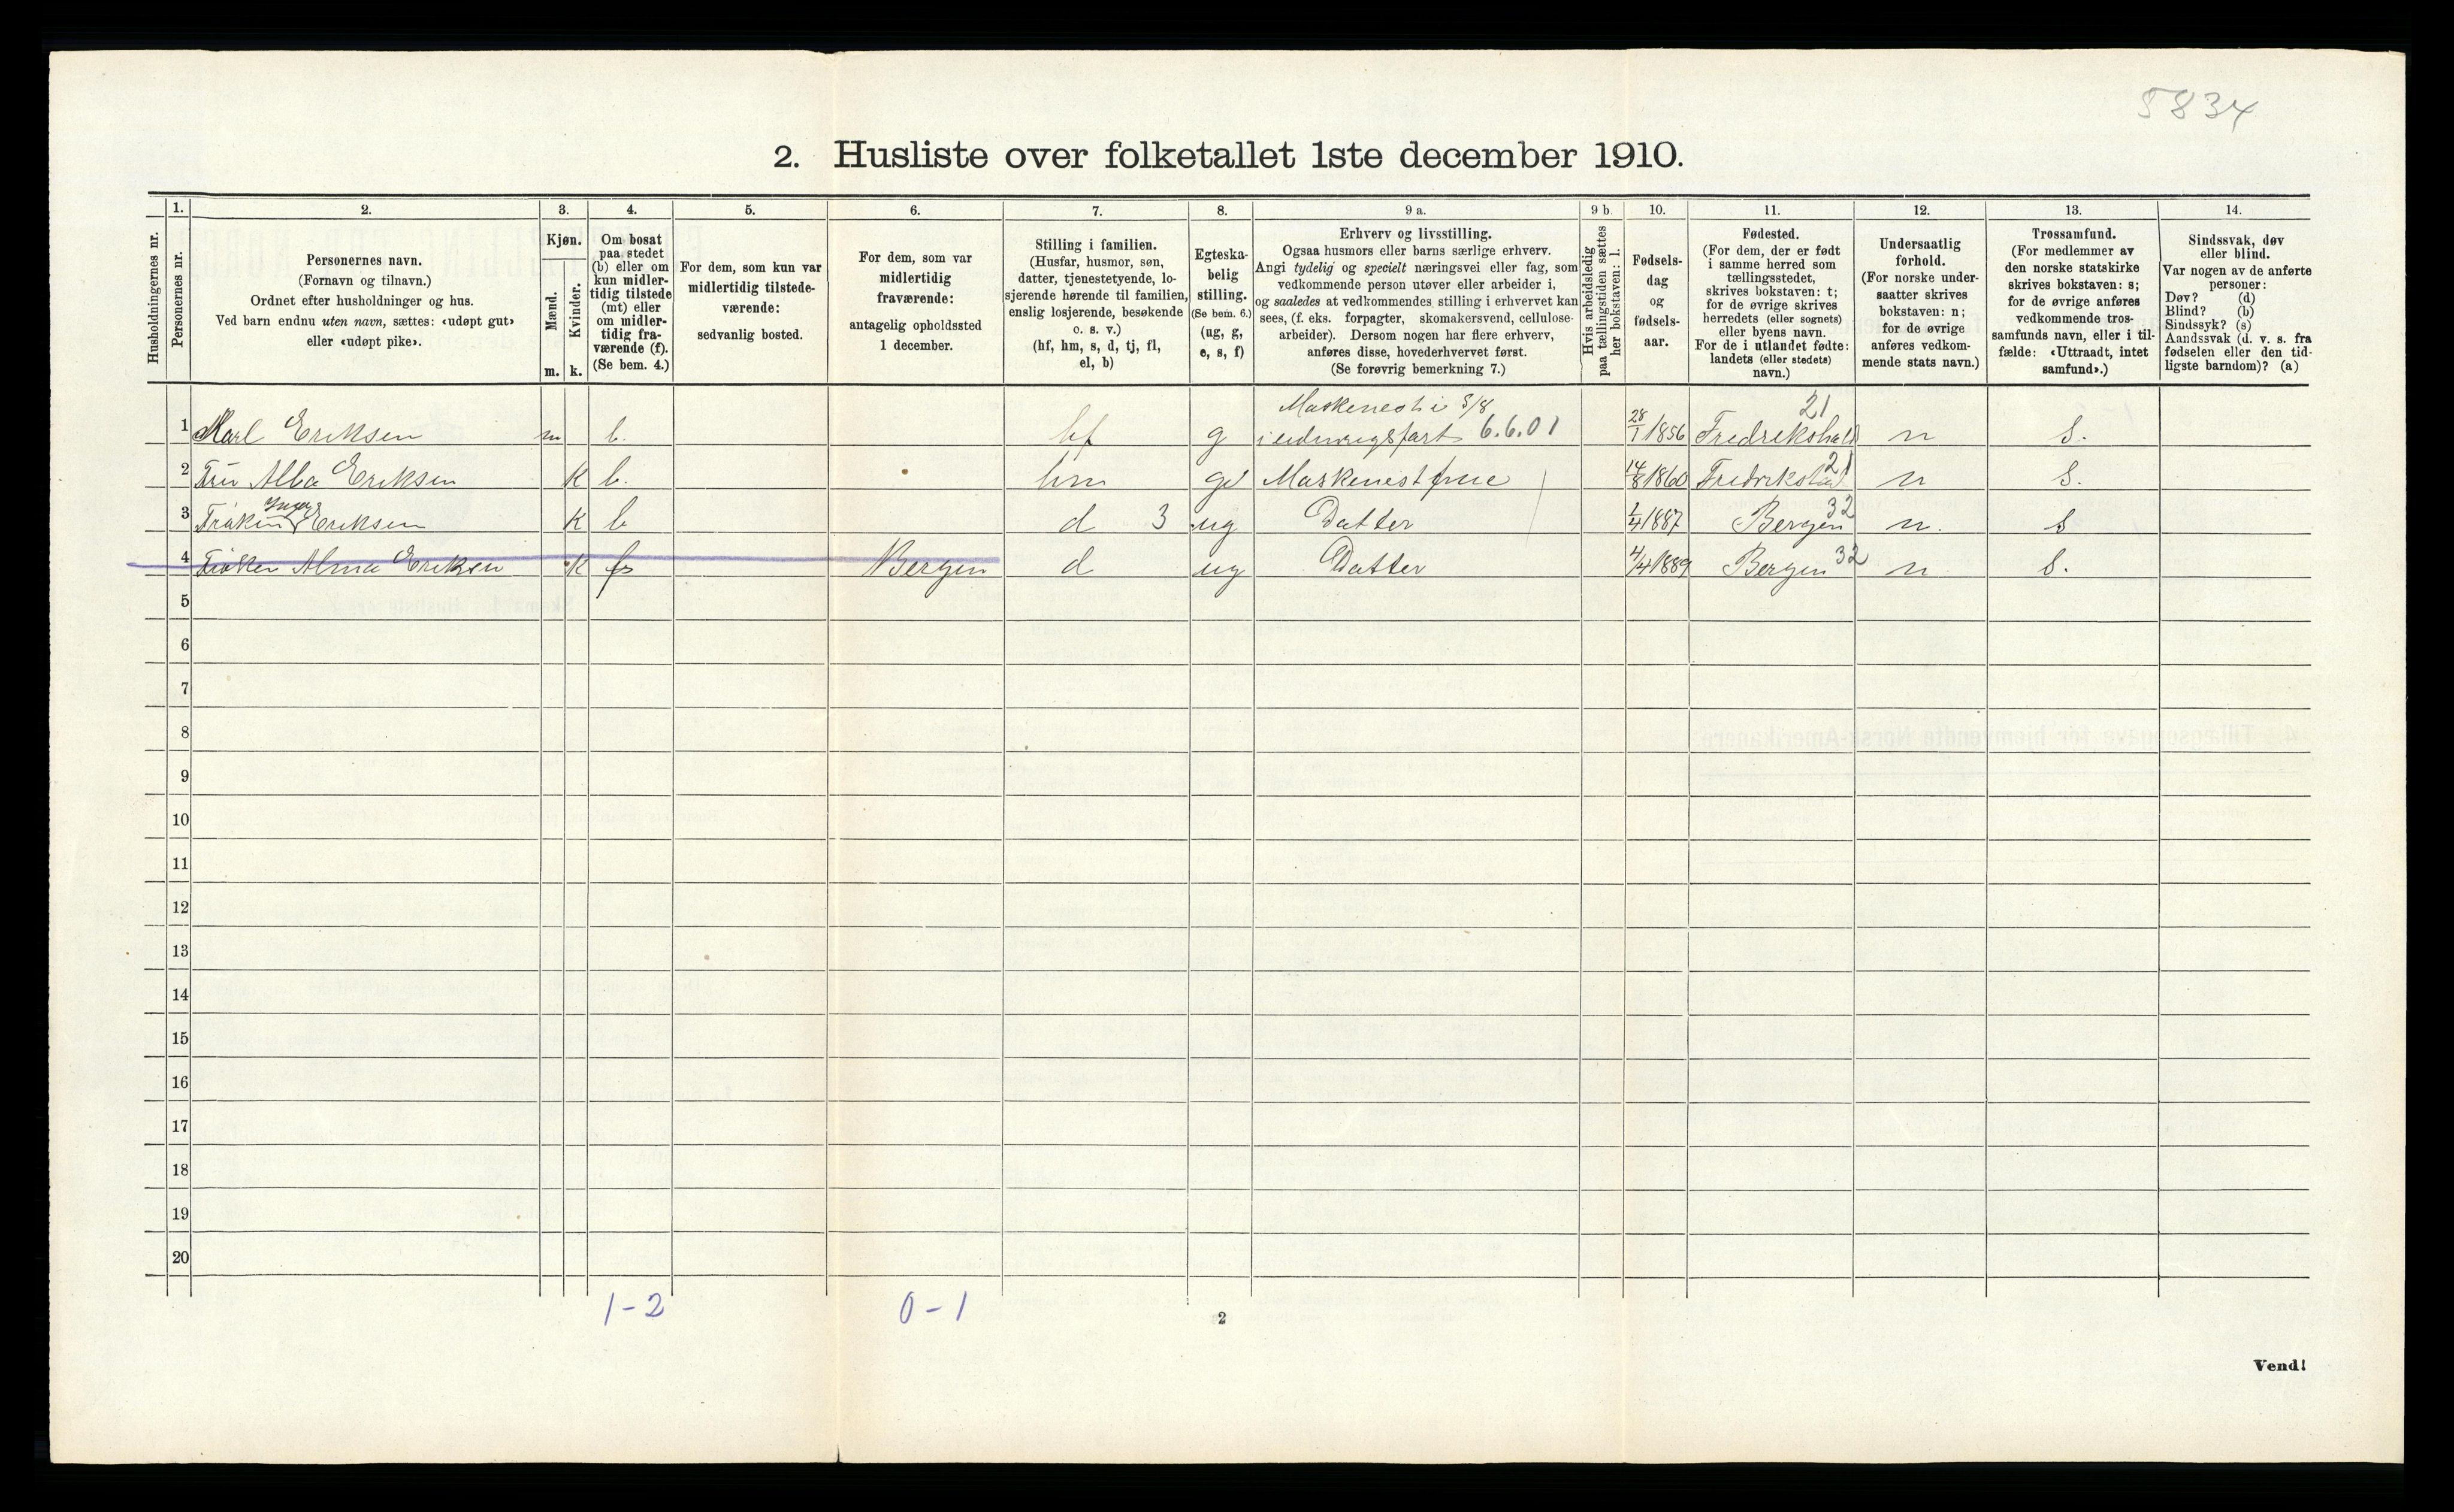 5834
2. Husliste over folketallet 1ste december 1910.
Husholdningernes nr.
1.
Personernes nr.
2.
Personernes navn.
(Fornavn og tilnavn.)
Ordnet efter husholdninger og hus.
Ved barn endnu uten navn, sættes: «udøpt gut»
eller «udøpt pike».
3.
Kjøn.
Mænd.
Kvinder.
m. k.
4.
Om bosat
paa stedet
(b) eller om
kun midler-
tidig tilstede
(mt) eller
om midler-
tidig fra-
værende (f).
(Se bem. 4.)
5.
For dem, som kun var
midlertidig tilstede-
værende:
sedvanlig bosted.
6.
For dem, som var
midlertidig
fraværende:
antagelig opholdssted
1 december.
7.
Stilling i familien.
(Husfar, husmor, søn,
datter, tjenestetyende, lo-
sjerende hørende til familien,
enslig losjerende, besøkende
o. s. v.)
(hf, hm, s, d, tj, fl,
el, b)
8.
Egteska-
belig
stilling.
(Se bem. 6.)
(ug, g,
e, s, f)
9 a.
Erhverv og livsstilling.
Ogsaa husmors eller barns særlige erhverv.
Angi tydelig og specielt næringsvei eller fag, som
vedkommende person utøver eller arbeider i,
og saaledes at vedkommendes stilling i erhvervet kan
sees, (f. eks. forpagter, skomakersvend, cellulose-
arbeider). Dersom nogen har flere erhverv,
anføres disse, hovederhvervet først.
(Se forøvrig bemerkning 7.)
9 b.
Hvis arbeidsledig
paa tællingstiden sættes
her bokstaven: l.
10.
Fødsels-
dag
og
fødsels-
aar.
11.
Fødested.
(For dem, der er født
i samme herred som
tællingsstedet,
skrives bokstaven: t;
for de øvrige skrives
herredets (eller sognets)
eller byens navn.
For de i utlandet fødte:
landets (eller stedets)
navn.)
12.
Undersaatlig
forhold.
(For norske under-
saatter skrives
bokstaven: n;
for de øvrige
anføres vedkom-
mende stats navn.)
13.
Trossamfund.
(For medlemmer av
den norske statskirke
skrives bokstaven: s;
for de øvrige anføres
vedkommende tros-
samfunds navn, eller i til-
fælde: «Uttraadt, intet
samfund».)
14.
Sindssvak, døv
eller blind.
Var nogen av de anførte
personer:
Døv? (d)
Blind? (b)
Sindssyk? (s)
Aandssvak (d. v. s. fra
fødselen eller den tid-
ligste barndom)? (a)
Maskenest i S/8 21
1 Karl Eriksen m b. hf g 6.6.01 28/1 1856 Fredrikshald n S.
2 Fru Alba Eriksen K b. hm g Maskenistfrue 14/8 1860 Fredrikstad 21 n S.
Inga
3 Eriksen K b d 3 ug Datter 1/4 1887 Bergen 32 n. S
4 Frøken Alma Eriksen K f Bergen d ug Datter 4/4 1889 Bergen 32 n S.
5
6
7
8
9
10
11
12
13
14
15
16
17
18
19
20
1-2 0-1
2
Vend!